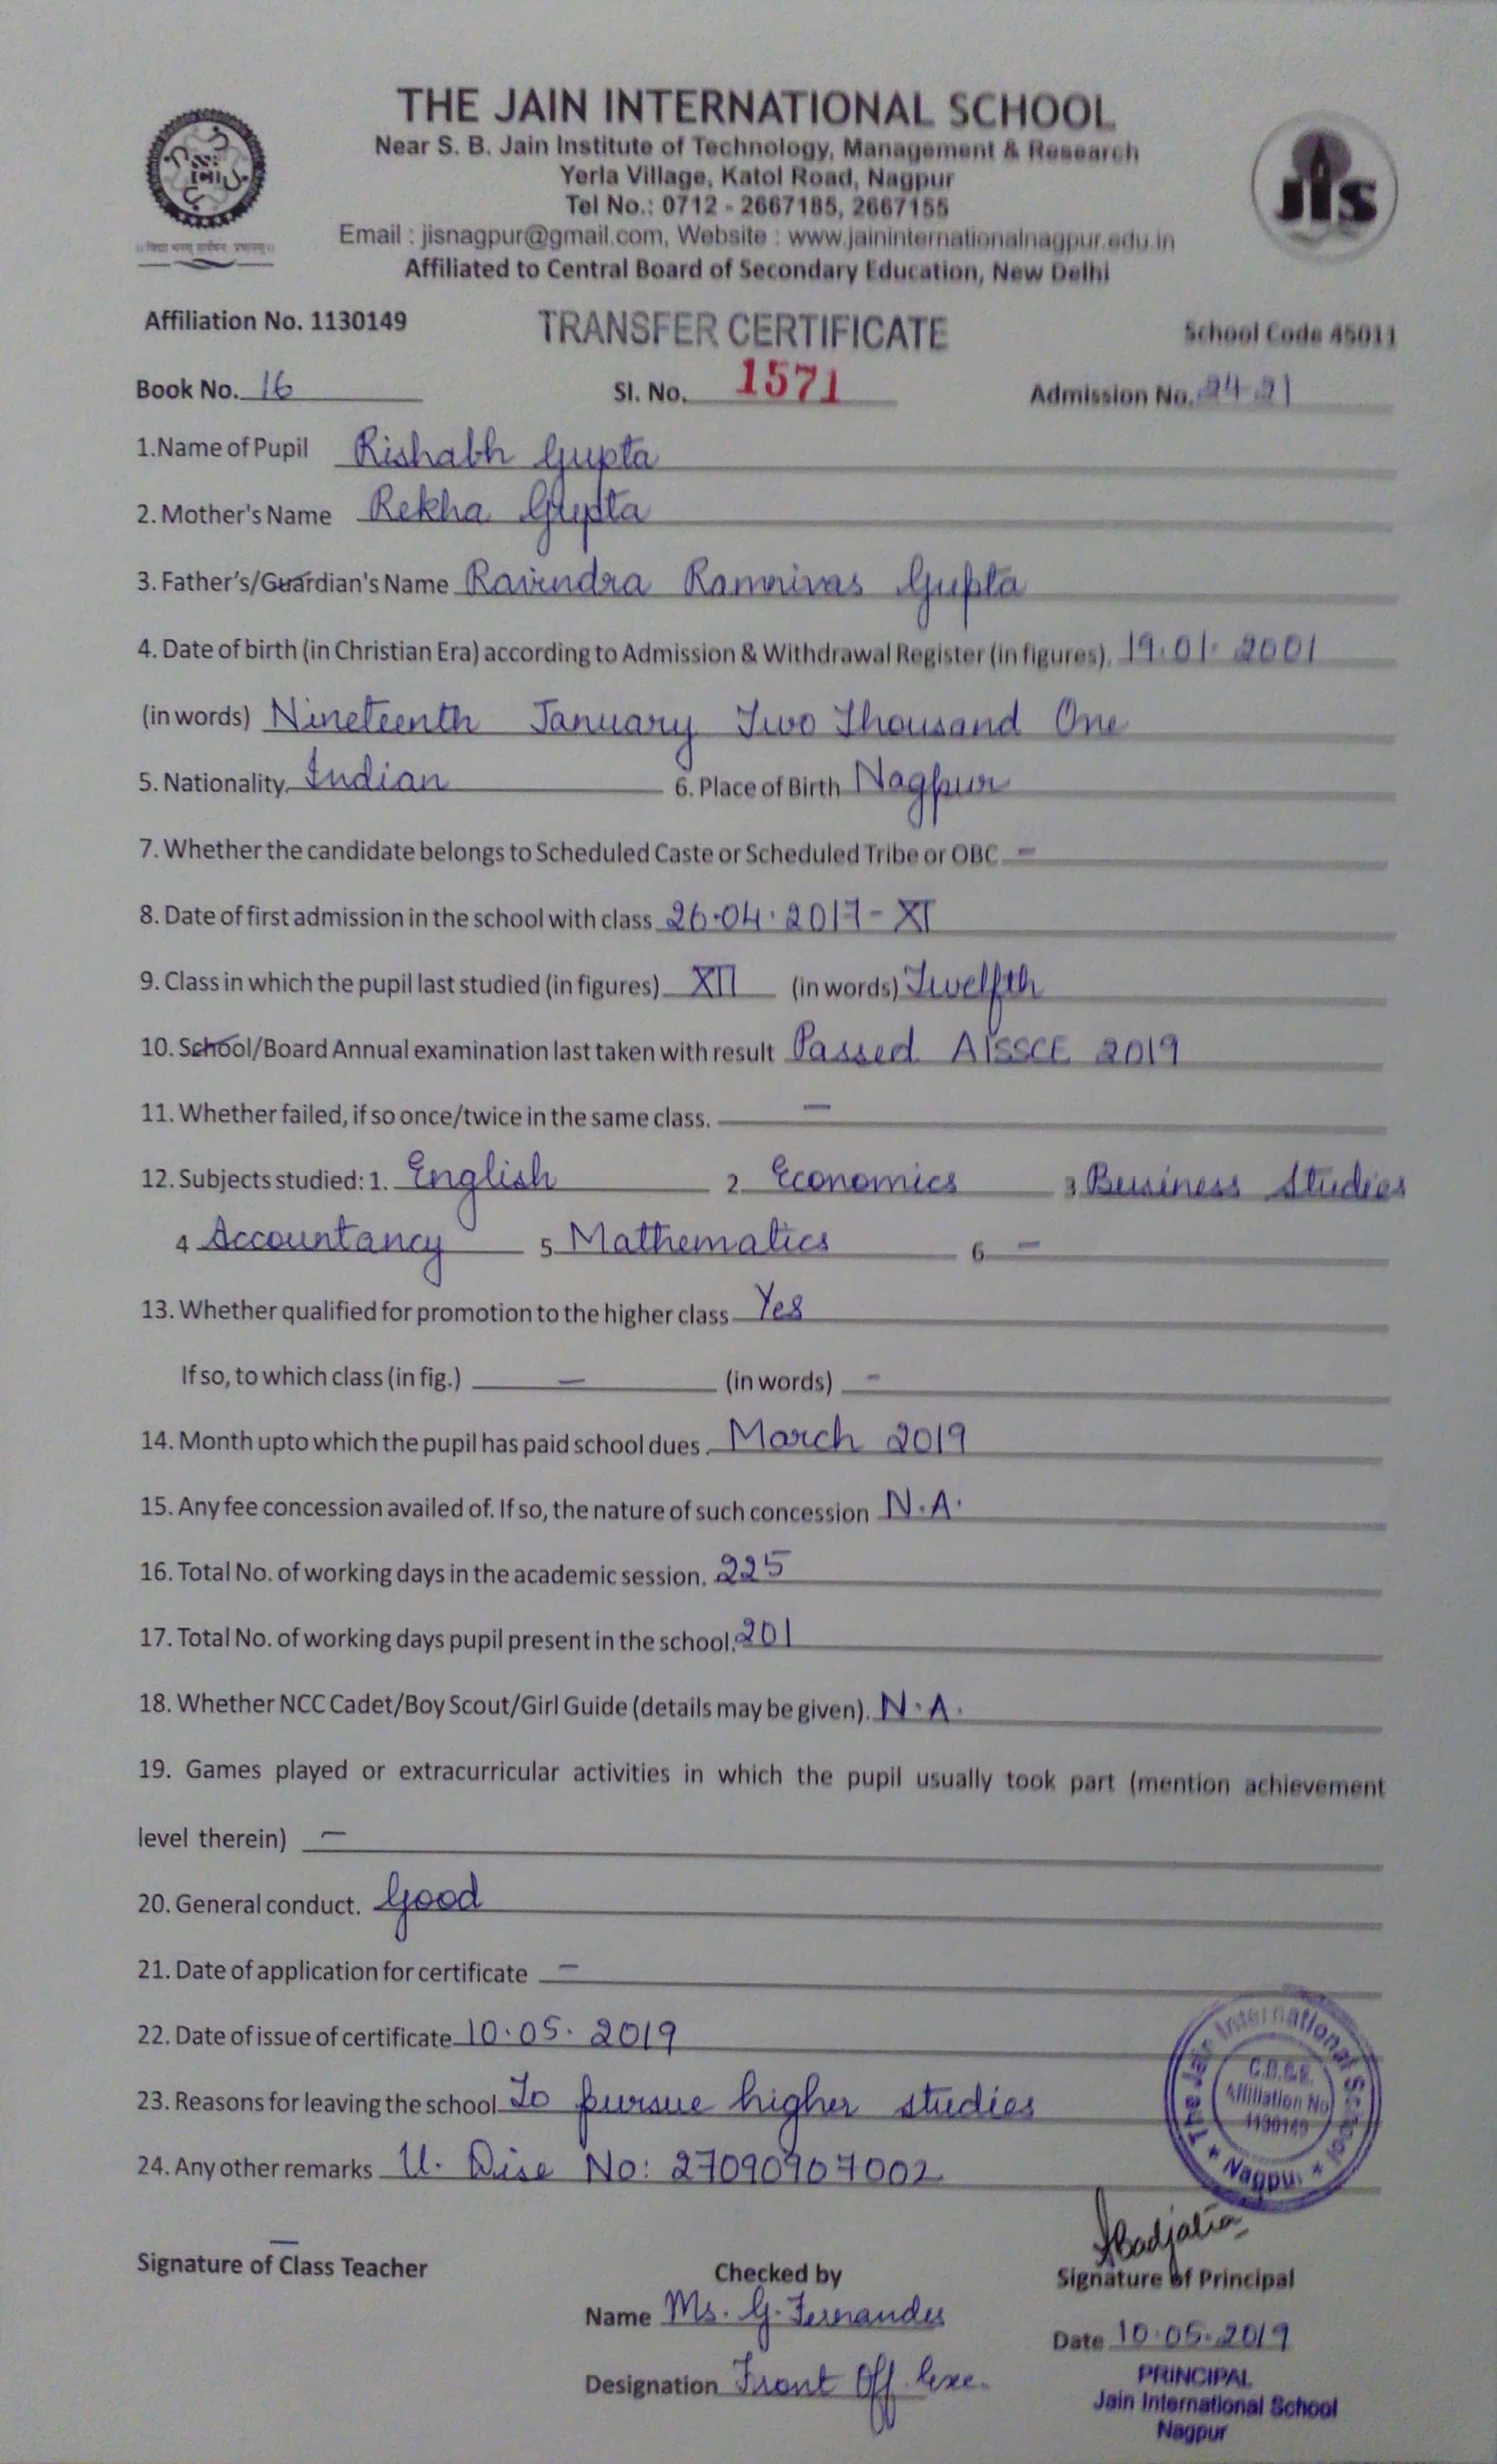 THE JAIN INTERNATIONAL SCHOOL
Near S. B. Jain Institute of Technology, Management & Research
Yerla Village, Katol Road, Nagpur
Tel No.: 0712 - 2667185, 2667155
Email : jisnagpur@gmail.com, Website : www.jaininternationalnagpur.edu.in
Affiliated to Central Board of Secondary Education, New Delhi
jis
Affiliation No. 1130149 TRANSFER CERTIFICATE School Code 45011
Book No. 16 Sl. No. 1571 Admission No. 2421
1.Name of Pupil Rishabh Gupta
2. Mother's Name Rekha Gupta
3. Father's/Guardian's Name Ravindra Ramnivas Gupta
4. Date of birth (in Christian Era) according to Admission & Withdrawal Register (in figures). 19.01.2001
(in words) Nineteenth January Two Thousand One
5. Nationality. Indian 6. Place of Birth Nagpur
7. Whether the candidate belongs to Scheduled Caste or Scheduled Tribe or OBC -
8. Date of first admission in the school with class 26.04.2017 - XI
9. Class in which the pupil last studied (in figures) XII (in words) Twelfth
10. School/Board Annual examination last taken with result Passed AISSCE 2019
11. Whether failed, if so once/twice in the same class. -
12. Subjects studied: 1. English 2 Economics 3 Business Studies
4 Accountancy 5 Mathematics 6 -
13. Whether qualified for promotion to the higher class Yes
If so, to which class (in fig.) - (in words) -
14. Month upto which the pupil has paid school dues. March 2019
15. Any fee concession availed of. If so, the nature of such concession N.A.
16. Total No. of working days in the academic session. 225
17. Total No. of working days pupil present in the school. 201
18. Whether NCC Cadet/Boy Scout/Girl Guide (details may be given). N.A.
19. Games played or extracurricular activities in which the pupil usually took part (mention achievement
level therein) -
20. General conduct. Good
21. Date of application for certificate -
22. Date of issue of certificate 10.05.2019
23. Reasons for leaving the school To pursue higher studies
24. Any other remarks U. Dise No: 27090907002
The Jain International School
C.B.S.E.
Affiliation No
1130149
* Nagpur *
Signature of Class Teacher Checked by Signature of Principal
Name Ms. G. Fernandes
Date 10.05.2019
Designation Front Off. Exe.
PRINCIPAL
Jain International School
Nagpur